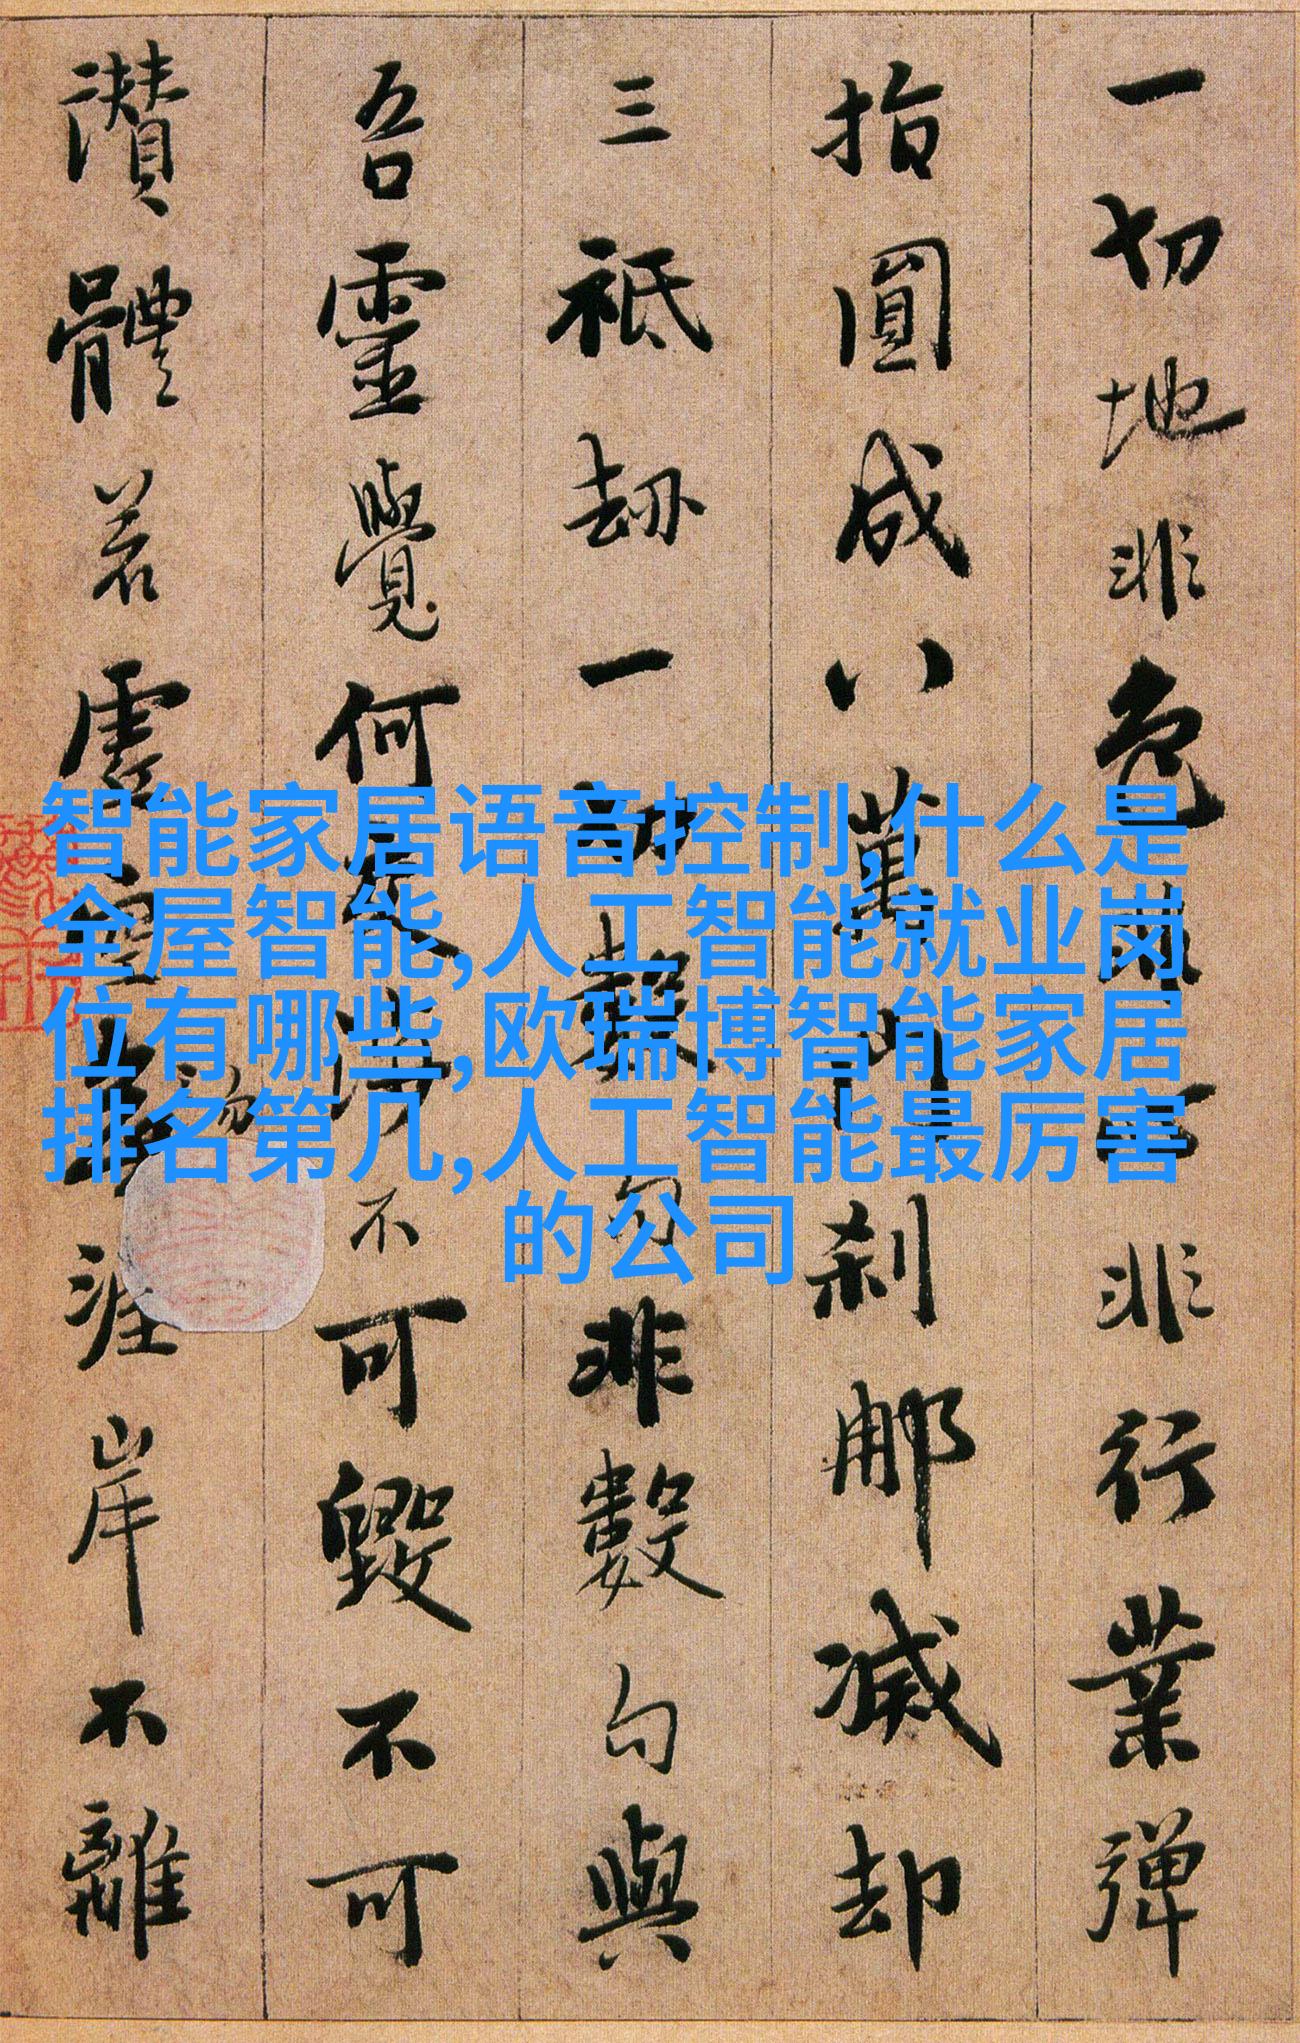 一切地非色非心非行業彈
指圓成八萬門刹那減却
三祇劫一切數句非數句與
吾靈覺何交涉不可毀不可
灒體若虛空勿涯岸不離
智能家居语音控制,什么是
全屋智能,人工智能就业岗
位有哪些,欧瑞博智能家居
排名第几,人工智能最厉害
的公司